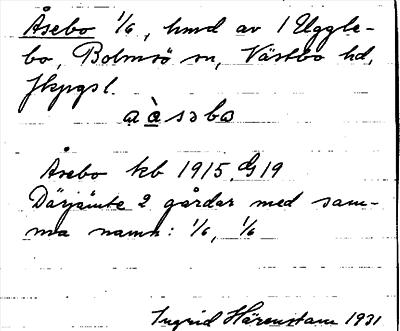 Åsebo 1/6, hmd av 1 Uggle-
bo, Bolmsö sn, Västbo hd,
Jkpgsl.
a̱ à̱ səbo
Åsebo kb 1915, G19
Därjämte 2 gårdar med sam-
ma namn: 1/6, 1/6
Ingrid Härenstam 1931